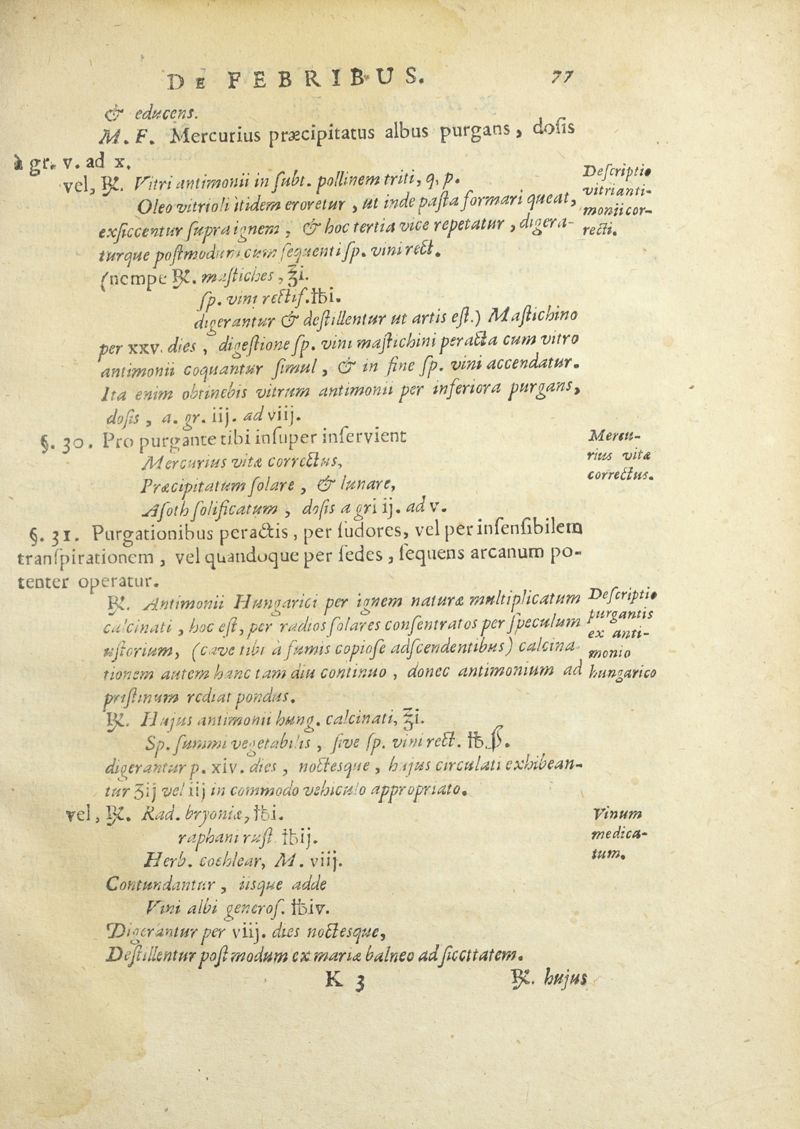 DE FEBRIBUS. 77
& educens.
M. F. Mercurius præcipitatus albus purgans, dosis
à gr. v. ad x.
vel, ℞. Vitri antimonii in subt. pollinem triti, q, p.
Oleo vitrioli itidem eroretur, ut inde pasta formari queat,
exsiccentur supra ignem, & hoc tertia vice repetatur, digera-
turque postmodum cum sequenti sp. vini rect.
Descriptio
vitri anti-
monii cor-
recti.
(nempe ℞. mastiches, ℥i.
sp. vini rectif. ℔i.
digerantur & destillentur ut artis est.) Mastichino
per xxv. dies, digestione sp. vini mastichini peracta cum vitro
antimonii coquantur simul, & in fine sp. vini accendatur.
Ita enim obtinebis vitrum antimonii per inferiora purgans,
dosis, a. gr. iij. ad viij.
§. 30. Pro purgante tibi insuper inservient
Mercurius vitæ correctus,
Præcipitatum solare, & lunare,
Asoth solificatum, dosis a gr iij. ad v.
Mercu-
rius vitæ
correctus.
§. 31. Purgationibus peractis, per sudores, vel per insensibilem
transpirationem, vel quandoque per sedes, sequens arcanum po-
tenter operatur.
℞. Antimonii Hungarici per ignem naturæ multiplicatum
calcinati, hoc est, per radios solares consentratos per speculum
ustorium, (cave tibi à fumis copiose adscendentibus) calcina-
tionem autem hanc tam diu continuo, donec antimonium ad
pristinum rediat pondus.
Descriptio
purgantis
ex anti-
monio
hungarico
℞. Hujus antimonii hung. calcinati, ℥i.
Sp. summi vegetabilis, sive sp. vini rect. ℔.ß.
digerantur p. xiv. dies, noctesque, hujus circulati exhibean-
tur ʒij vel iij in commodo vehiculo appropriato.
vel, ℞. Rad. bryoniæ, ℔i.
raphani rust ℔ij.
Herb. cochlear, M. viij.
Contundantur, iisque adde
Vini albi generos. ℔iv.
Digerantur per viij. dies noctesque,
Destillentur postmodum ex mariæ balneo ad siccitatem.
Vinum
medica-
tum.
K 3 ℞. hujus